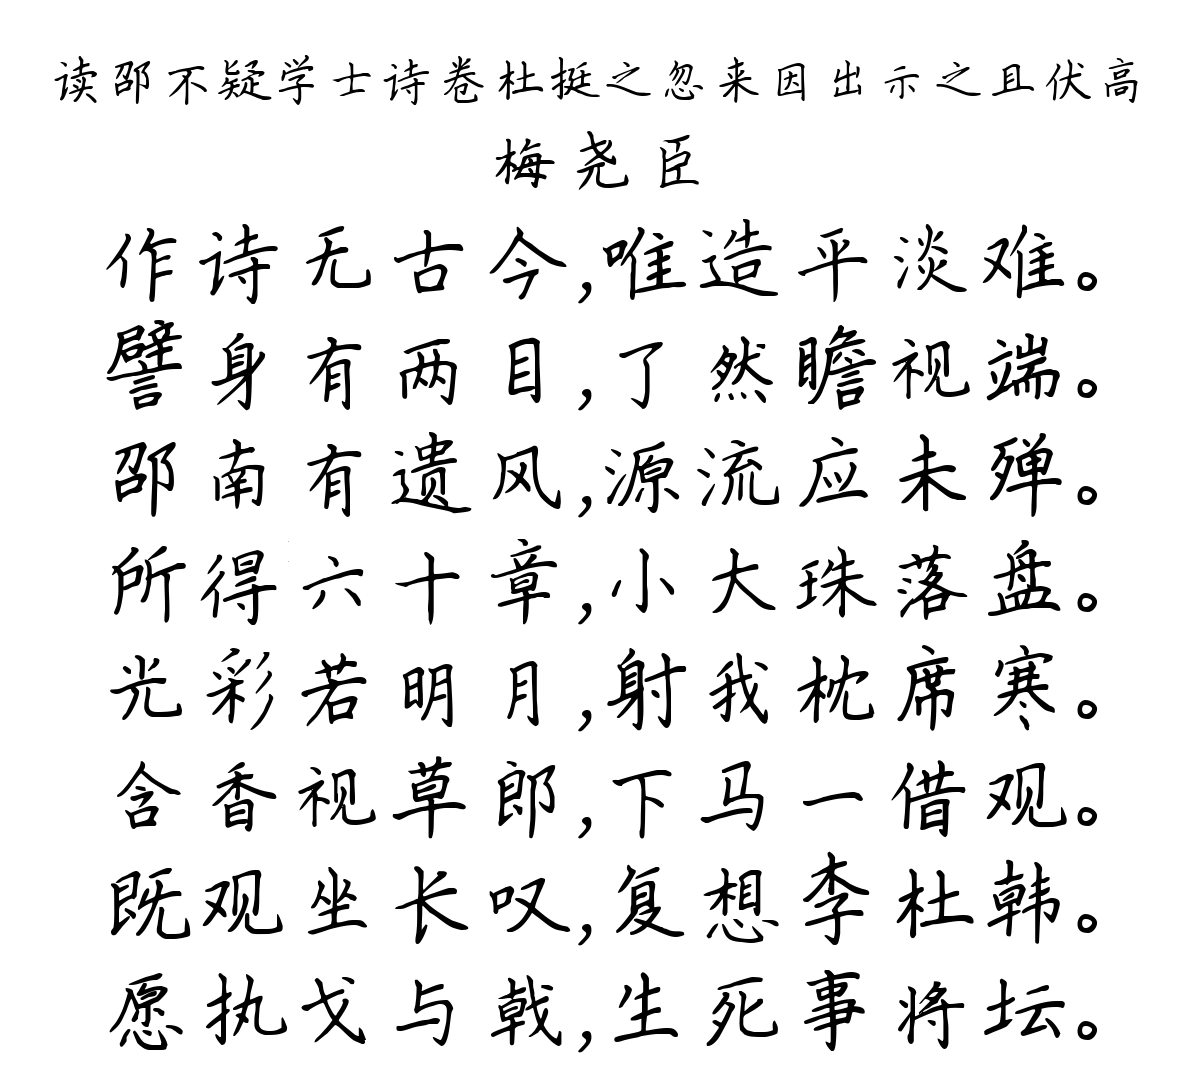 读邵不疑学士诗卷杜挺之忽来因出示之且伏高
梅尧臣
作诗无古今,唯造平淡难。
譬身有两目,了然瞻视端。
邵南有遗风,源流应未殚。
所得六十章,小大珠落盘。
光彩若明月,射我枕席寒。
含香视草郎,下马一借观。
既观坐长叹,复想李杜韩。
愿执戈与戟,生死事将坛。